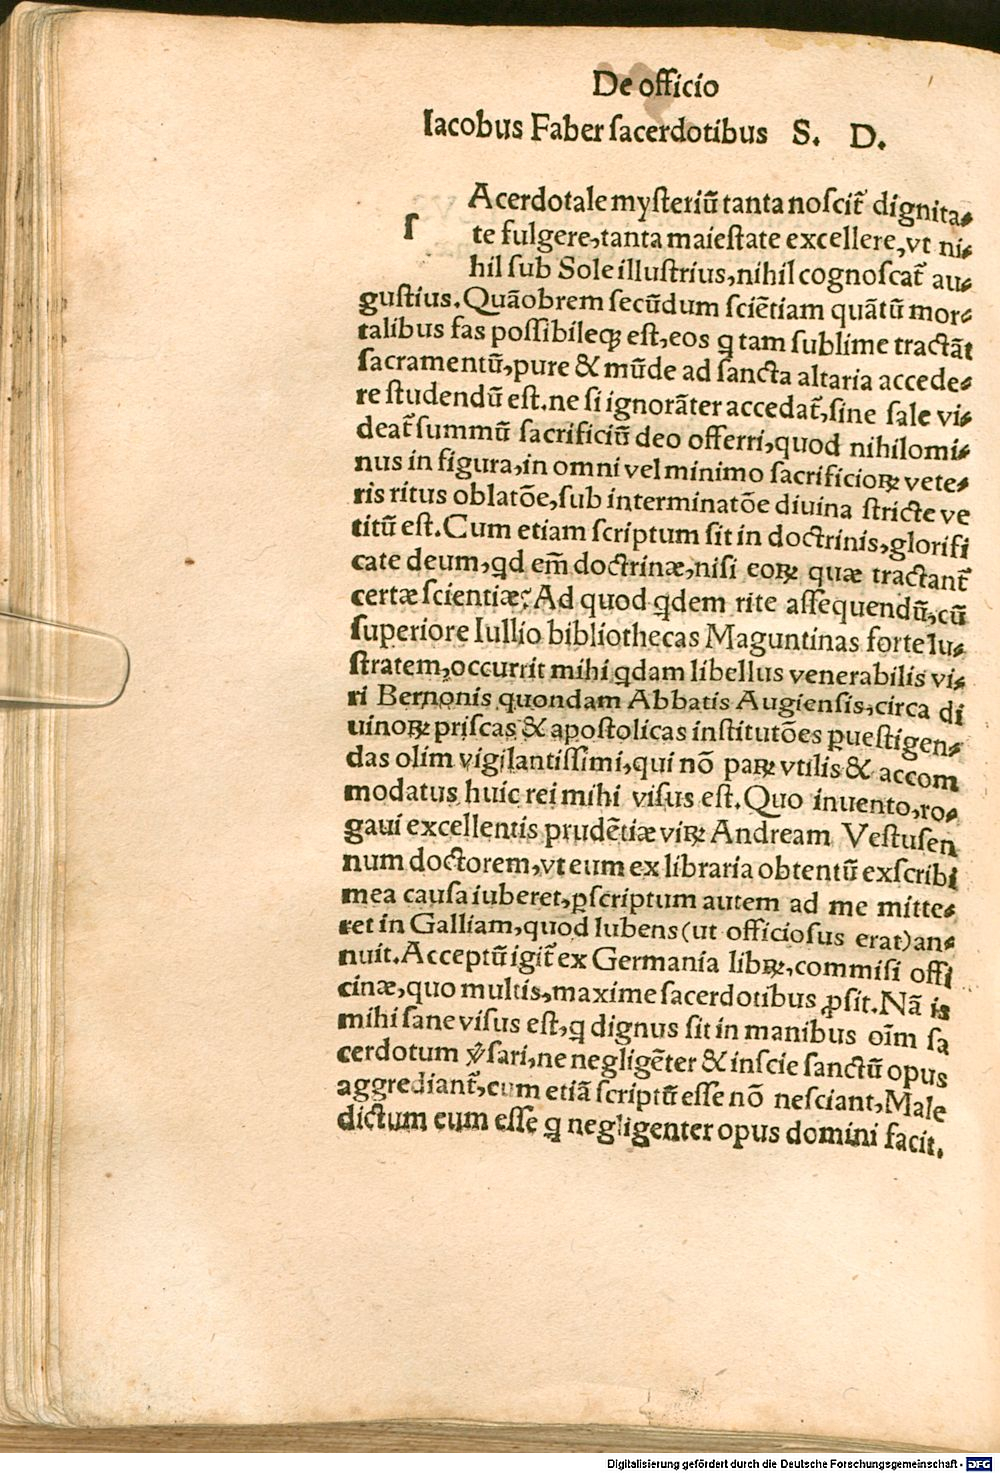 De officio
Iacobus Faber ſacerdotibus S. D.
ſ
Acerdotale myſteriũ tanta noſcit᷑ dignita⸗
te fulgere,tanta maieſtate excellere,vt ni⸗
hil ſub Sole illuſtrius,nihil cognoſcat᷑ au⸗
guſtius.Quãobrem ſecũdum ſciẽtiam quãtũ mor⸗
talibus fas poſſibileqꝫ eſt,eos q̃ tam ſublime tractãt
ſacramentũ,pure & mũde ad ſancta altaria accede⸗
re ſtudendũ eſt.ne ſi ignorãter accedat᷑,ſine ſale vi⸗
deat᷑ ſummũ ſacrificiũ deo offerri,quod nihilomi⸗
nus in figura,in omni vel minimo ſacrificioꝝ vete⸗
ris ritus oblatõe,ſub interminatõe diuina ſtricte ve
titũ eſt.Cum etiam ſcriptum ſit in doctrinis,glorifi
cate deum,qd em̃ doctrinæ,niſi eoꝝ quæ tractant᷑
certæ ſcientiæ? Ad quod qdem rite aſſequendũ,cũ
ſuperiore Iullio bibliothecas Maguntinas forte lu⸗
ſtratem,occurrit mihi qdam libellus venerabilis vi⸗
ri Bernonis quondam Abbatis Augienſis,circa di
uinoꝝ priſcas & apoſtolicas inſtitutões ꝑueſtigen⸗
das olim vigilantiſſimi,qui nõ paꝝ vtilis & accom
modatus huic rei mihi viſus eſt.Quo inuento,ro⸗
gaui excellentis prudẽtiæ viꝝ Andream Veſtuſen
num doctorem,vt eum ex libraria obtentũ exſcribi
mea cauſa iuberet,ꝑſcriptum autem ad me mitte⸗
ret in Galliam,quod lubens(ut officioſus erat)an⸗
nuit.Acceptũ igit᷑ ex Germania libꝝ,commiſi offi
cinæ,quo multis,maxime ſacerdotibus ꝓſit.Nã is
mihi ſane viſus eſt,q̃ dignus ſit in manibus oĩm ſa
cerdotum v̓ſari,ne negligẽter & inſcie ſanctũ opus
aggrediant᷑,cum etiã ſcriptũ eſſe nõ neſciant,Male
dictum eum eſſe q̃ negligenter opus domini facit.
Digitalisierung gefördert durch die Deutsche Forschungsgemeinschaft - DFG